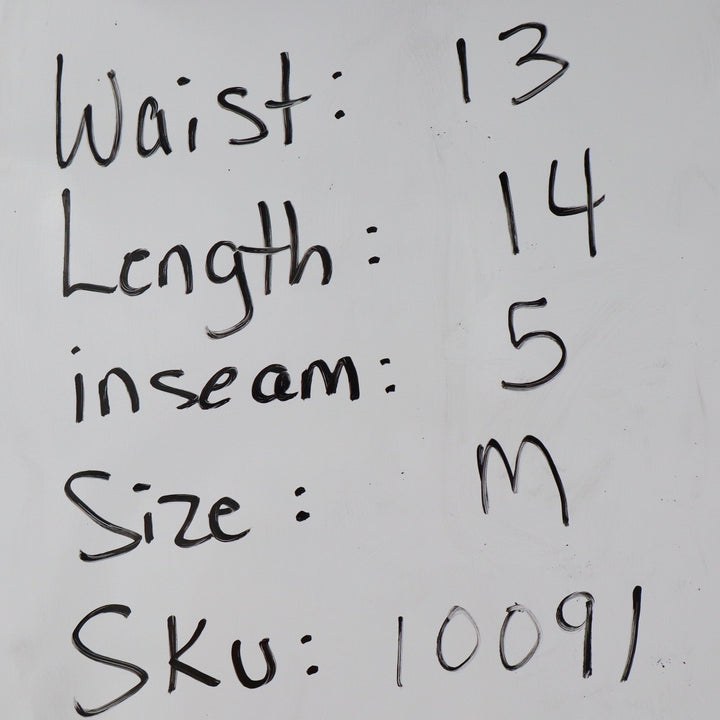 Waist: 13
Length: 14
inseam: 5
Size: M
SKU: 10091